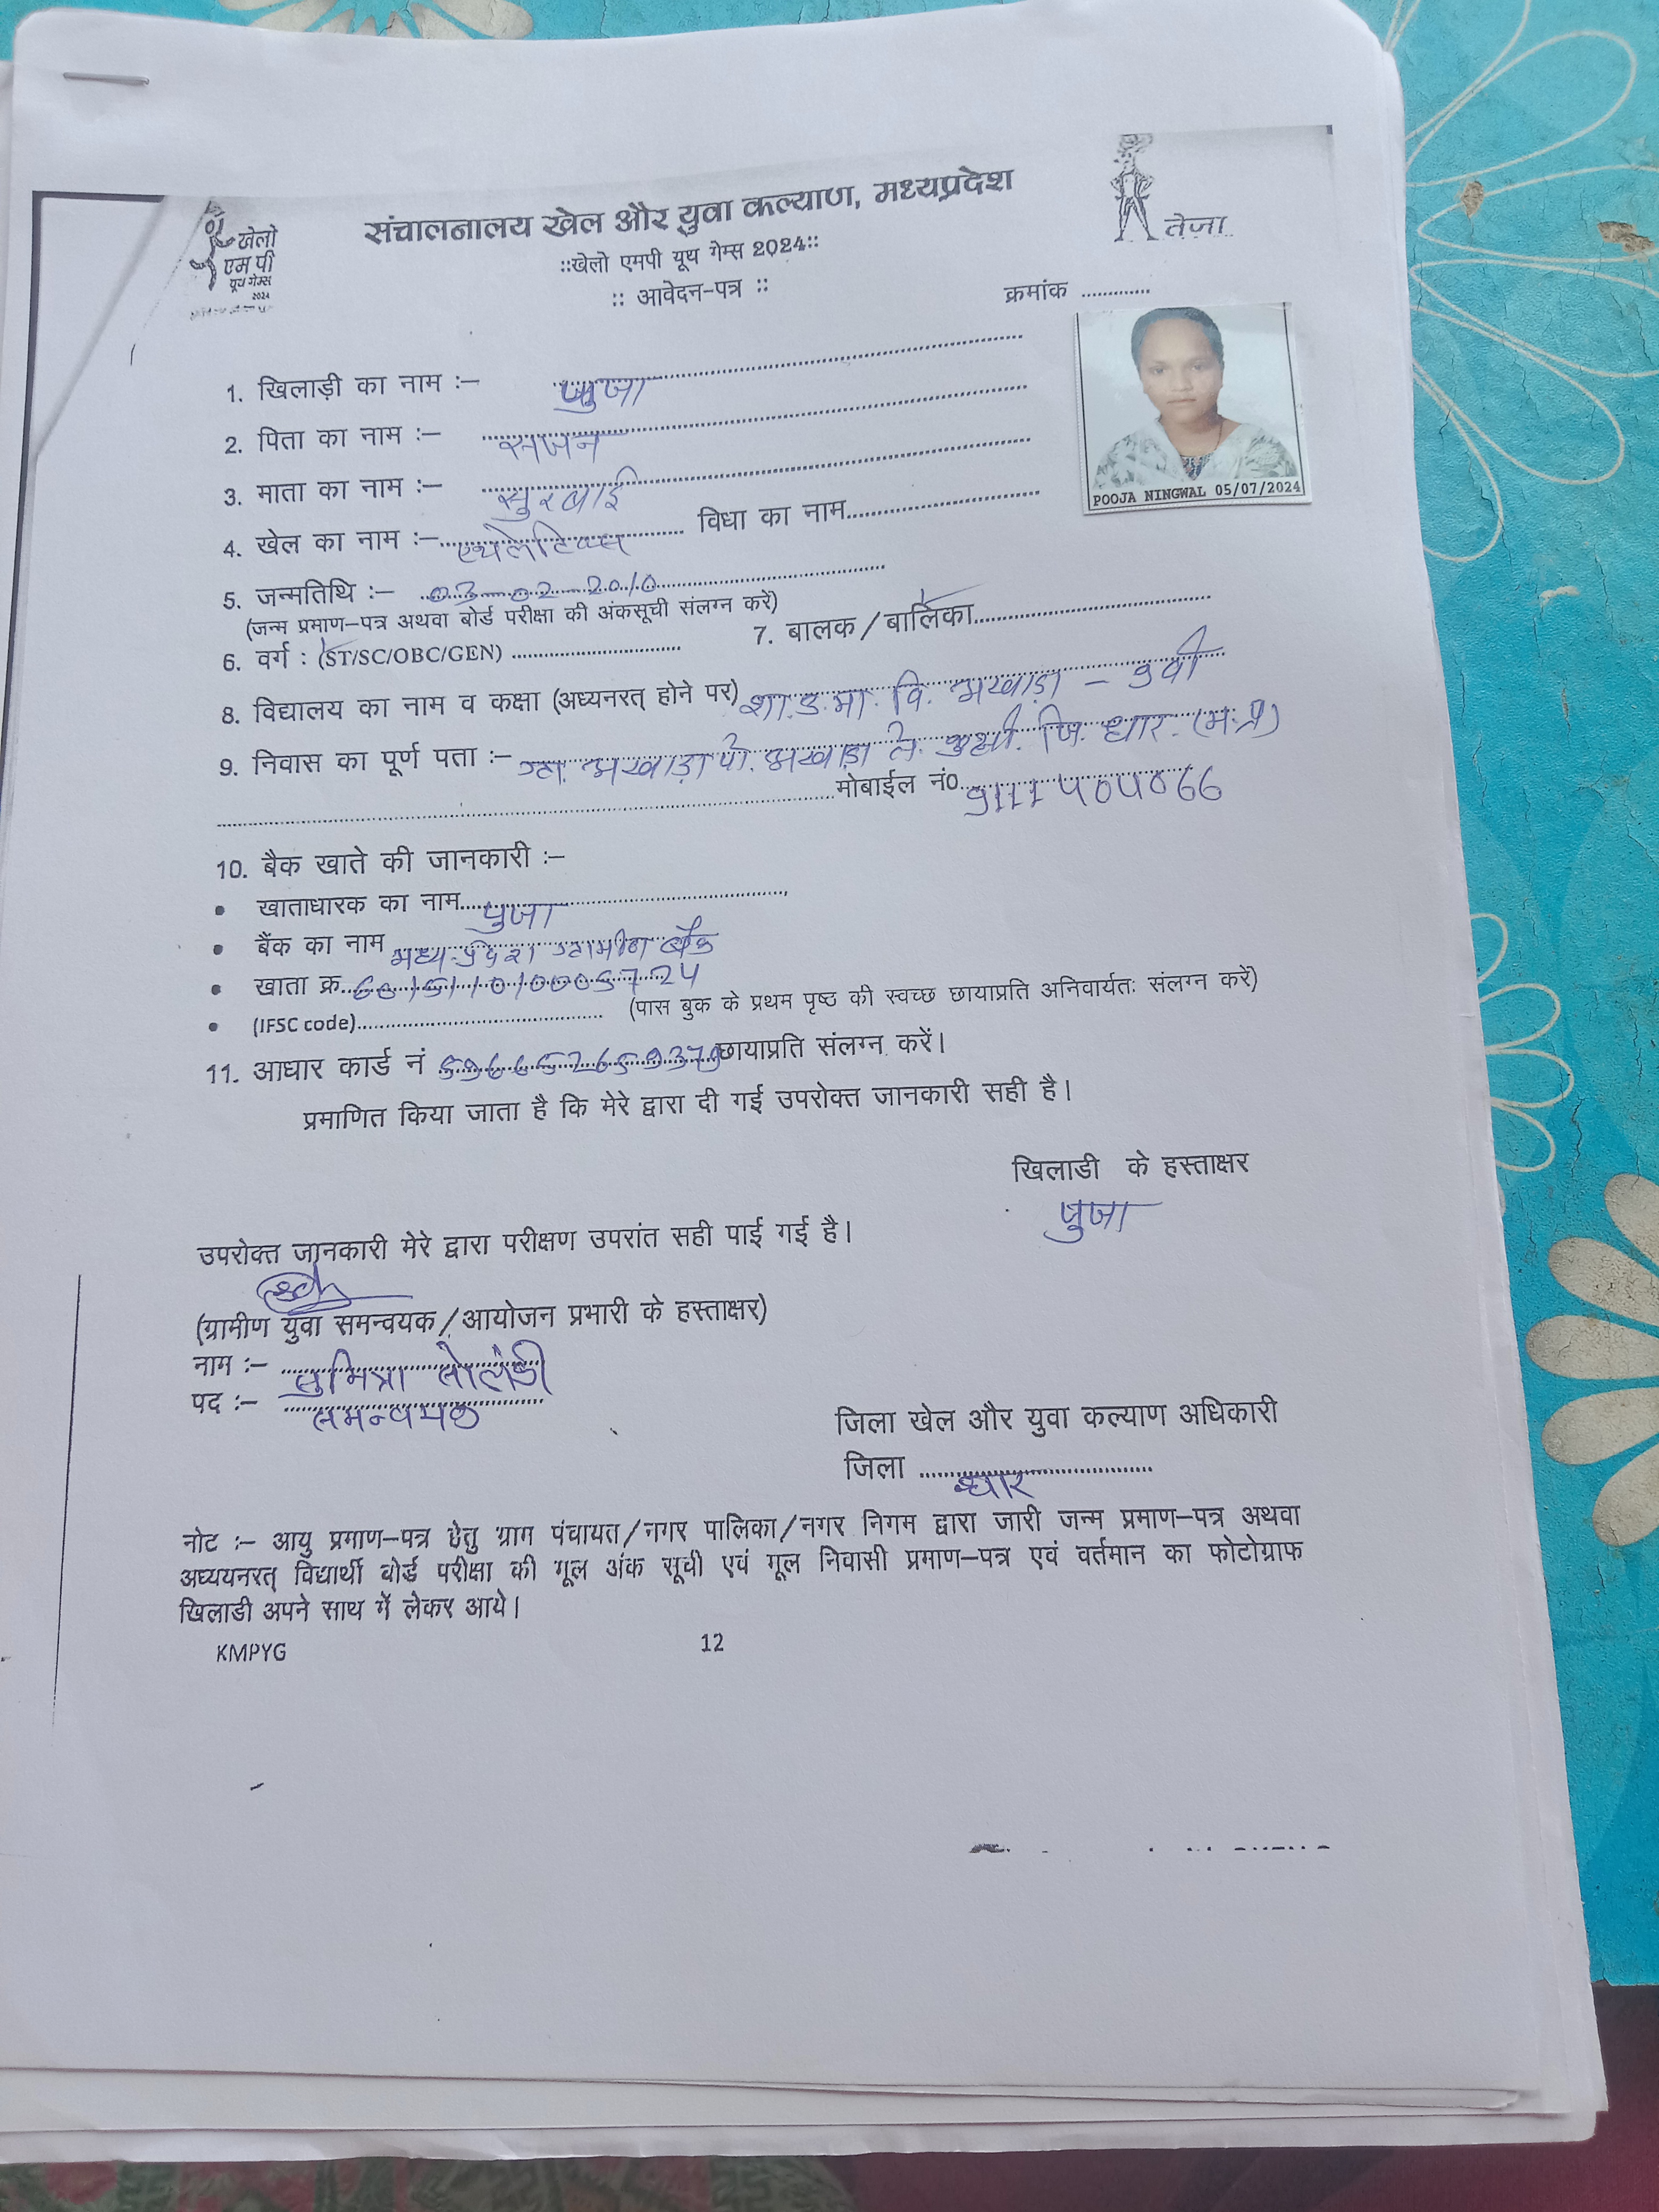 संचालनालय खेल और युवा कल्याण, मध्यप्रदेश
::खेलो एमपी यूथ गेम्स 2024::
:: आवेदन-पत्र ::
खेलो
एम पी
यूथ गेम्स
2024
तेजा
क्रमांक .............
POOJA NINGWAL 05/07/2024
1. खिलाड़ी का नाम :– पुजा
2. पिता का नाम :– सजन
3. माता का नाम :– सुरबाई
4. खेल का नाम :– एथलेटिक्स विधा का नाम
5. जन्मतिथि :– 03-02-2010
(जन्म प्रमाण–पत्र अथवा बोर्ड परीक्षा की अंकसूची संलग्न करें)
6. वर्ग : (ST/SC/OBC/GEN) 7. बालक / बालिका
8. विद्यालय का नाम व कक्षा (अध्यनरत् होने पर) शा.उ.मा. वि. – 9वी
9. निवास का पूर्ण पता :– ग्रा. पो. ते. कुक्षी. जि. धार. (म.प्र)
मोबाईल नं0. 9111404066
10. बैक खाते की जानकारी :–
• खाताधारक का नाम पुजा
• बैंक का नाम मध्य प्रदेश ग्रामीण बैंक
• खाता क्र.
• (IFSC code) (पास बुक के प्रथम पृष्ठ की स्वच्छ छायाप्रति अनिवार्यतः संलग्न करें)
11. आधार कार्ड नं 596652659379 छायाप्रति संलग्न करें।
प्रमाणित किया जाता है कि मेरे द्वारा दी गई उपरोक्त जानकारी सही है।
खिलाडी के हस्ताक्षर
पुजा
उपरोक्त जानकारी मेरे द्वारा परीक्षण उपरांत सही पाई गई है।
(ग्रामीण युवा समन्वयक / आयोजन प्रभारी के हस्ताक्षर)
नाम :– सुमित्रा सोलंकी
पद :– समन्वयक
जिला खेल और युवा कल्याण अधिकारी
जिला धार
नोट :– आयु प्रमाण–पत्र हेतु ग्राम पंचायत/नगर पालिका/नगर निगम द्वारा जारी जन्म प्रमाण–पत्र अथवा
अध्ययनरत् विद्यार्थी बोर्ड परीक्षा की मूल अंक सूची एवं मूल निवासी प्रमाण–पत्र एवं वर्तमान का फोटोग्राफ
खिलाडी अपने साथ में लेकर आये।
KMPYG 12